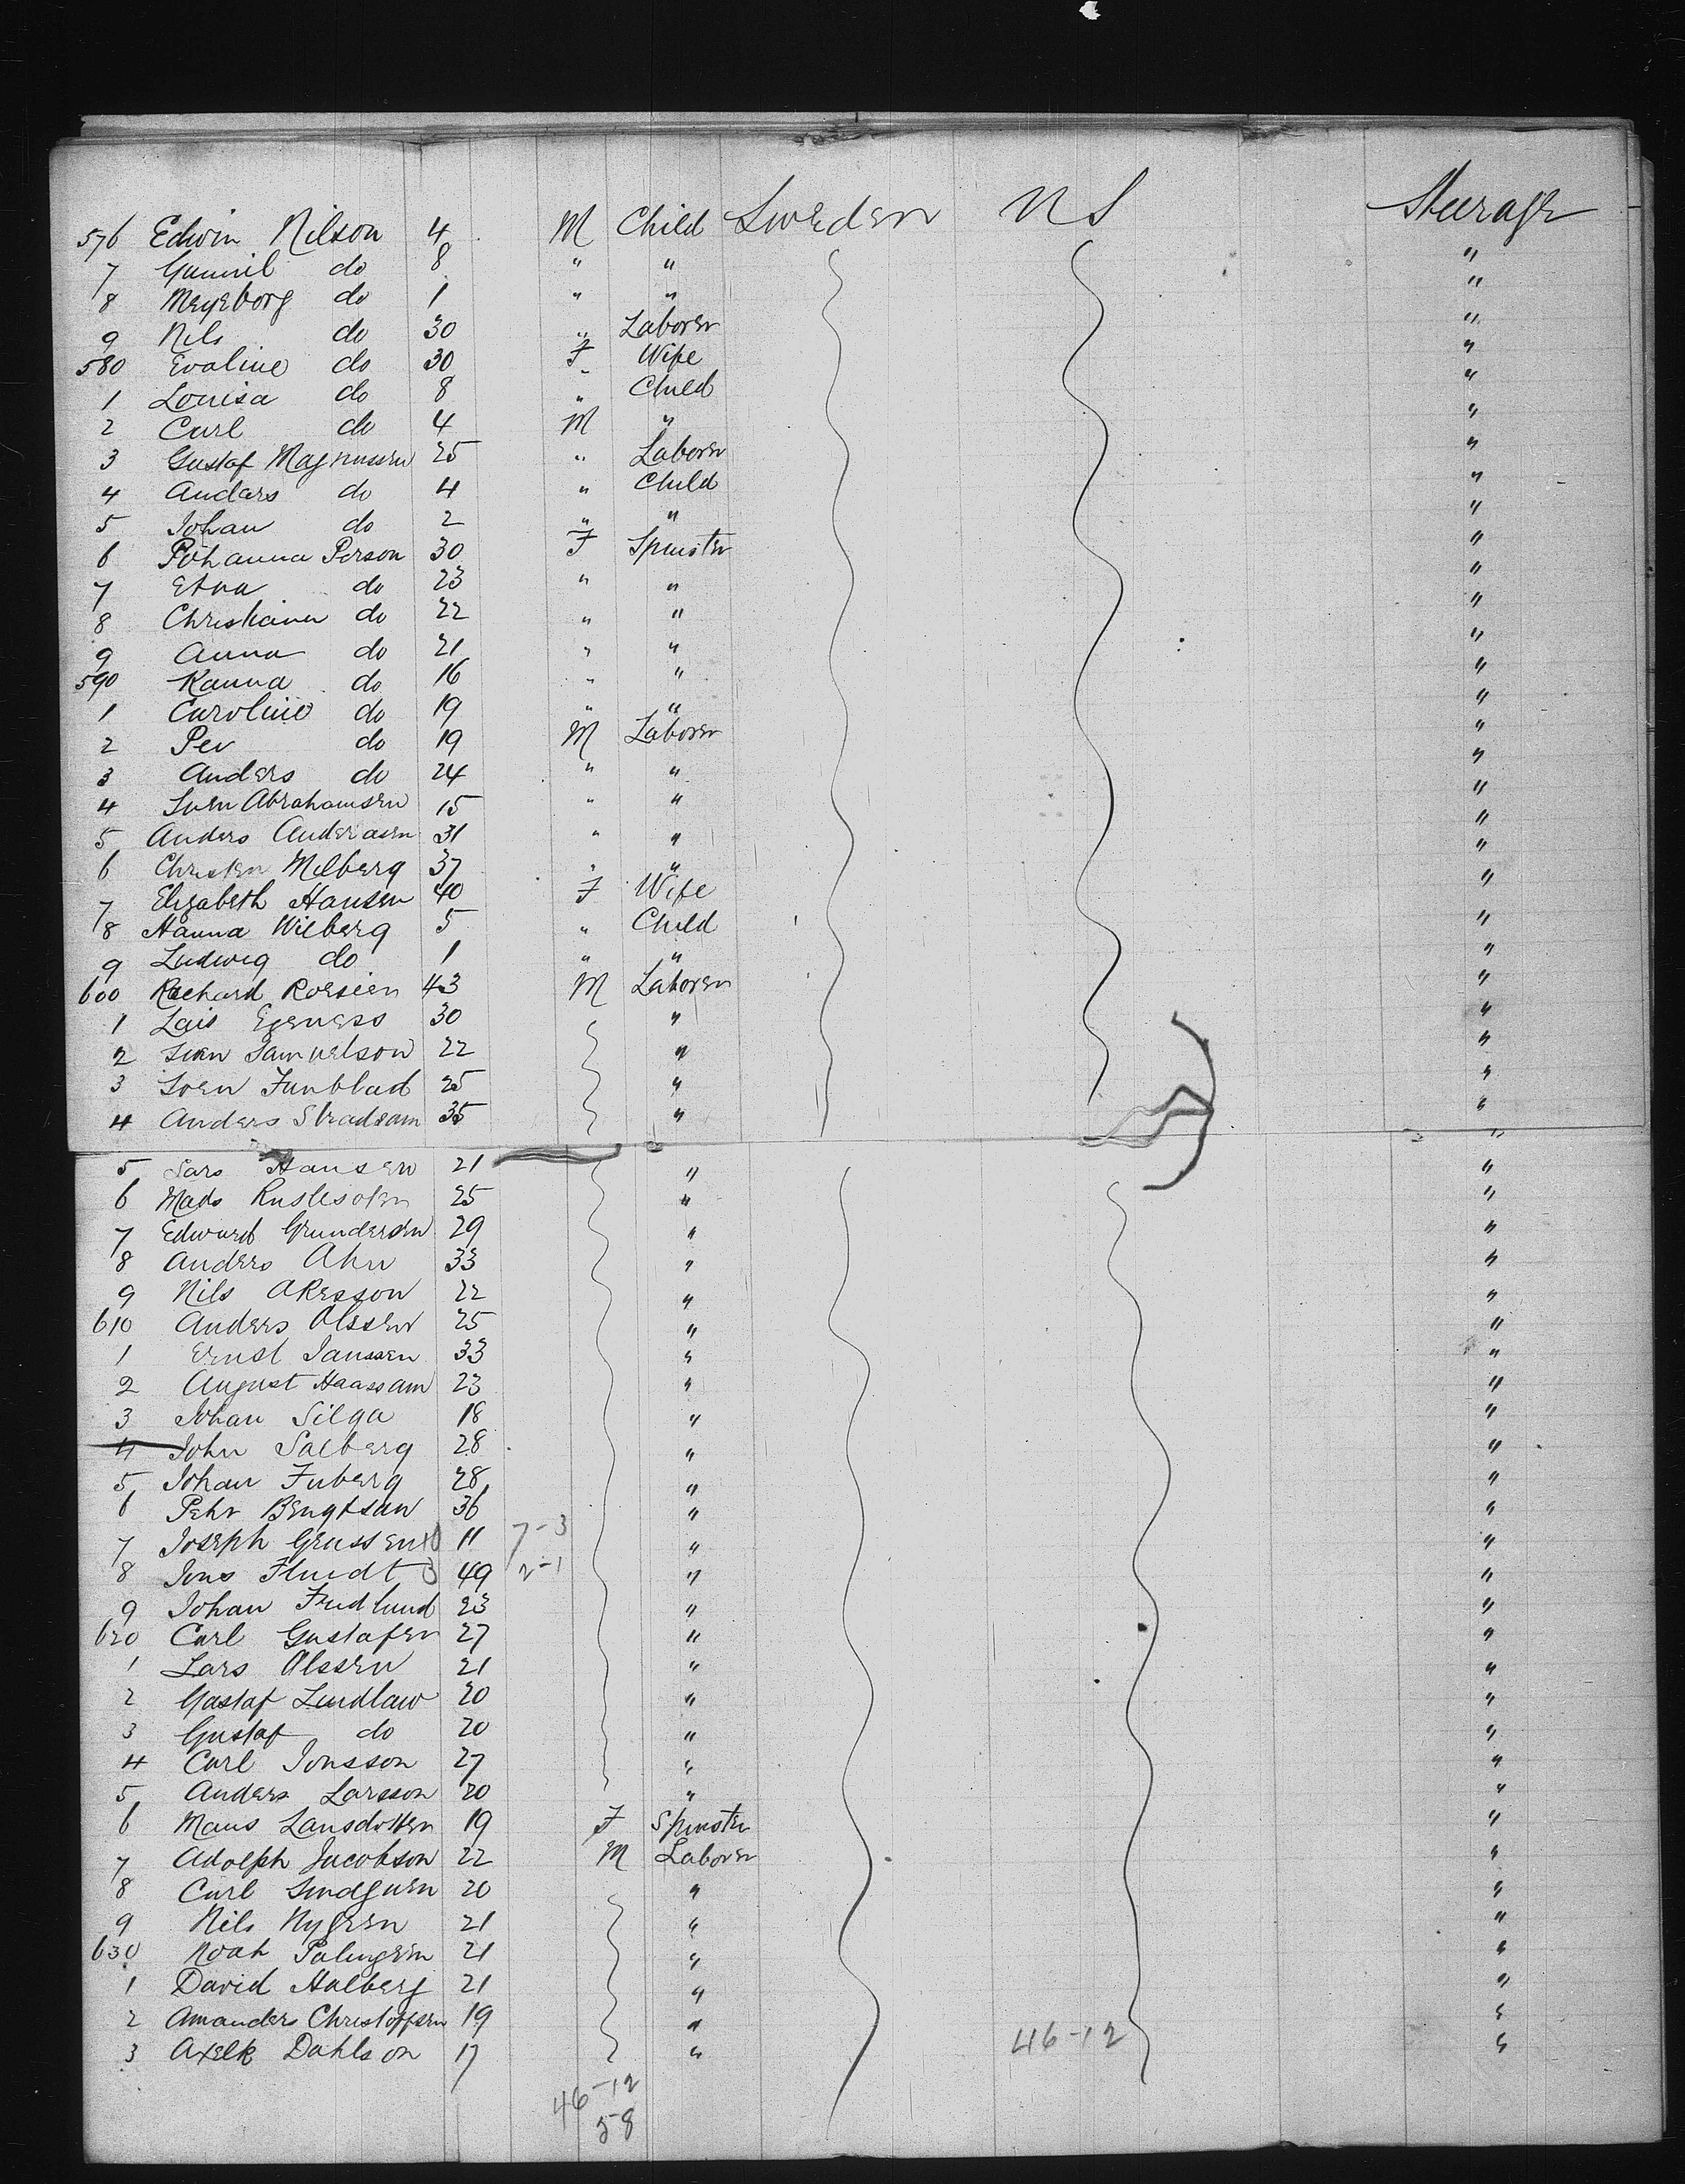 576 Edwin Nilson 4 M Child Sweden U S Steerage
7 Gunnil do 8 " " "
8 Meyeborg do 1 " " "
9 Nils do 30 " Laborer "
580 Evaline do 30 F Wife "
1 Louisa do 8 " Child "
2 Carl do 4 M " "
3 Gustaf Magnussen 25 " Laborer "
4 Anders do 4 " Child "
5 Johan do 2 " " "
6 Johanna Person 30 F Spinster "
7 Etna do 23 " " "
8 Christiana do 22 " " "
9 Anna do 21 " " "
590 Kanna do 16 " " "
1 Caroline do 19 " " "
2 Per do 19 M Laborer "
3 Anders do 24 " " "
4 Sven Abrahamsen 15 " " "
5 Anders Anderasen 31 " " "
6 Christen Milberg 37 " " "
7 Elizabeth Hansen 40 F Wife "
8 Hanna Wilberg 5 " Child "
9 Ludwig do 1 " " "
600 Richard Roesien 43 M Laborer "
1 Lais 30 " "
2 Sven Samuelson 22 " "
3 Sven Funblad 25 " "
4 Anders Stradsam 35 " "
5 Lars Hansen 21 " "
6 Mads 25 " "
7 Edward Grundersen 29 " "
8 Anders Ahn 33 " "
9 Nils Akesson 22 " "
610 Anders Olssen 25 " "
1 Ernst Janssen 33 " "
2 August Haassam 23 " "
3 Johan Silga 18 " "
4 John Salberg 28 " "
5 Johan Fuberg 28 " "
6 Pehr Bengtsan 36 " "
7 Joseph Grussen 11 7-3 " "
8 Jons Flindt 49 2-1 " "
9 Johan Fridlund 23 " "
620 Carl Gustafen 27 " "
1 Lars Olssen 21 " "
2 Gastaf Lindlaw 20 " "
3 Gustaf do 20 " "
4 Carl Jonsson 27 " "
5 Anders Larsson 20 " "
6 Mans Lansdotten 19 F Spinster "
7 Adolph Jacobson 22 M Laborer "
8 Carl Lindguen 20 " "
9 Nils Nygren 21 " "
630 Noah Palmgren 21 " "
1 David Halberg 21 " "
2 Amanders Christoffsen 19 " "
3 Axelk Dahlson 17 " 46-12 "
46-12
58